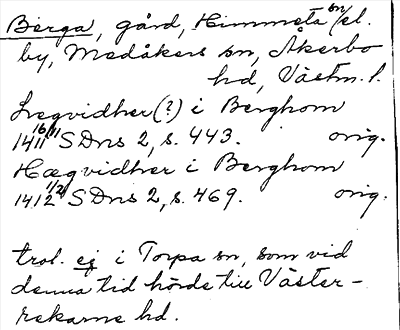 Berga, gård, Himmeta sn/el.
by, Medåkers sn, Åkerbo
hd, Västm. l.
Lægvidher (?) i Berghom
1411 16/11 SDns 2, s. 443. orig.
Hægvidher i Berghom
1412 1/2 SDns 2, s. 469. orig.
trol. ej i Torpa sn, som vid
denna tid hörde till Väster-
rekarne hd.